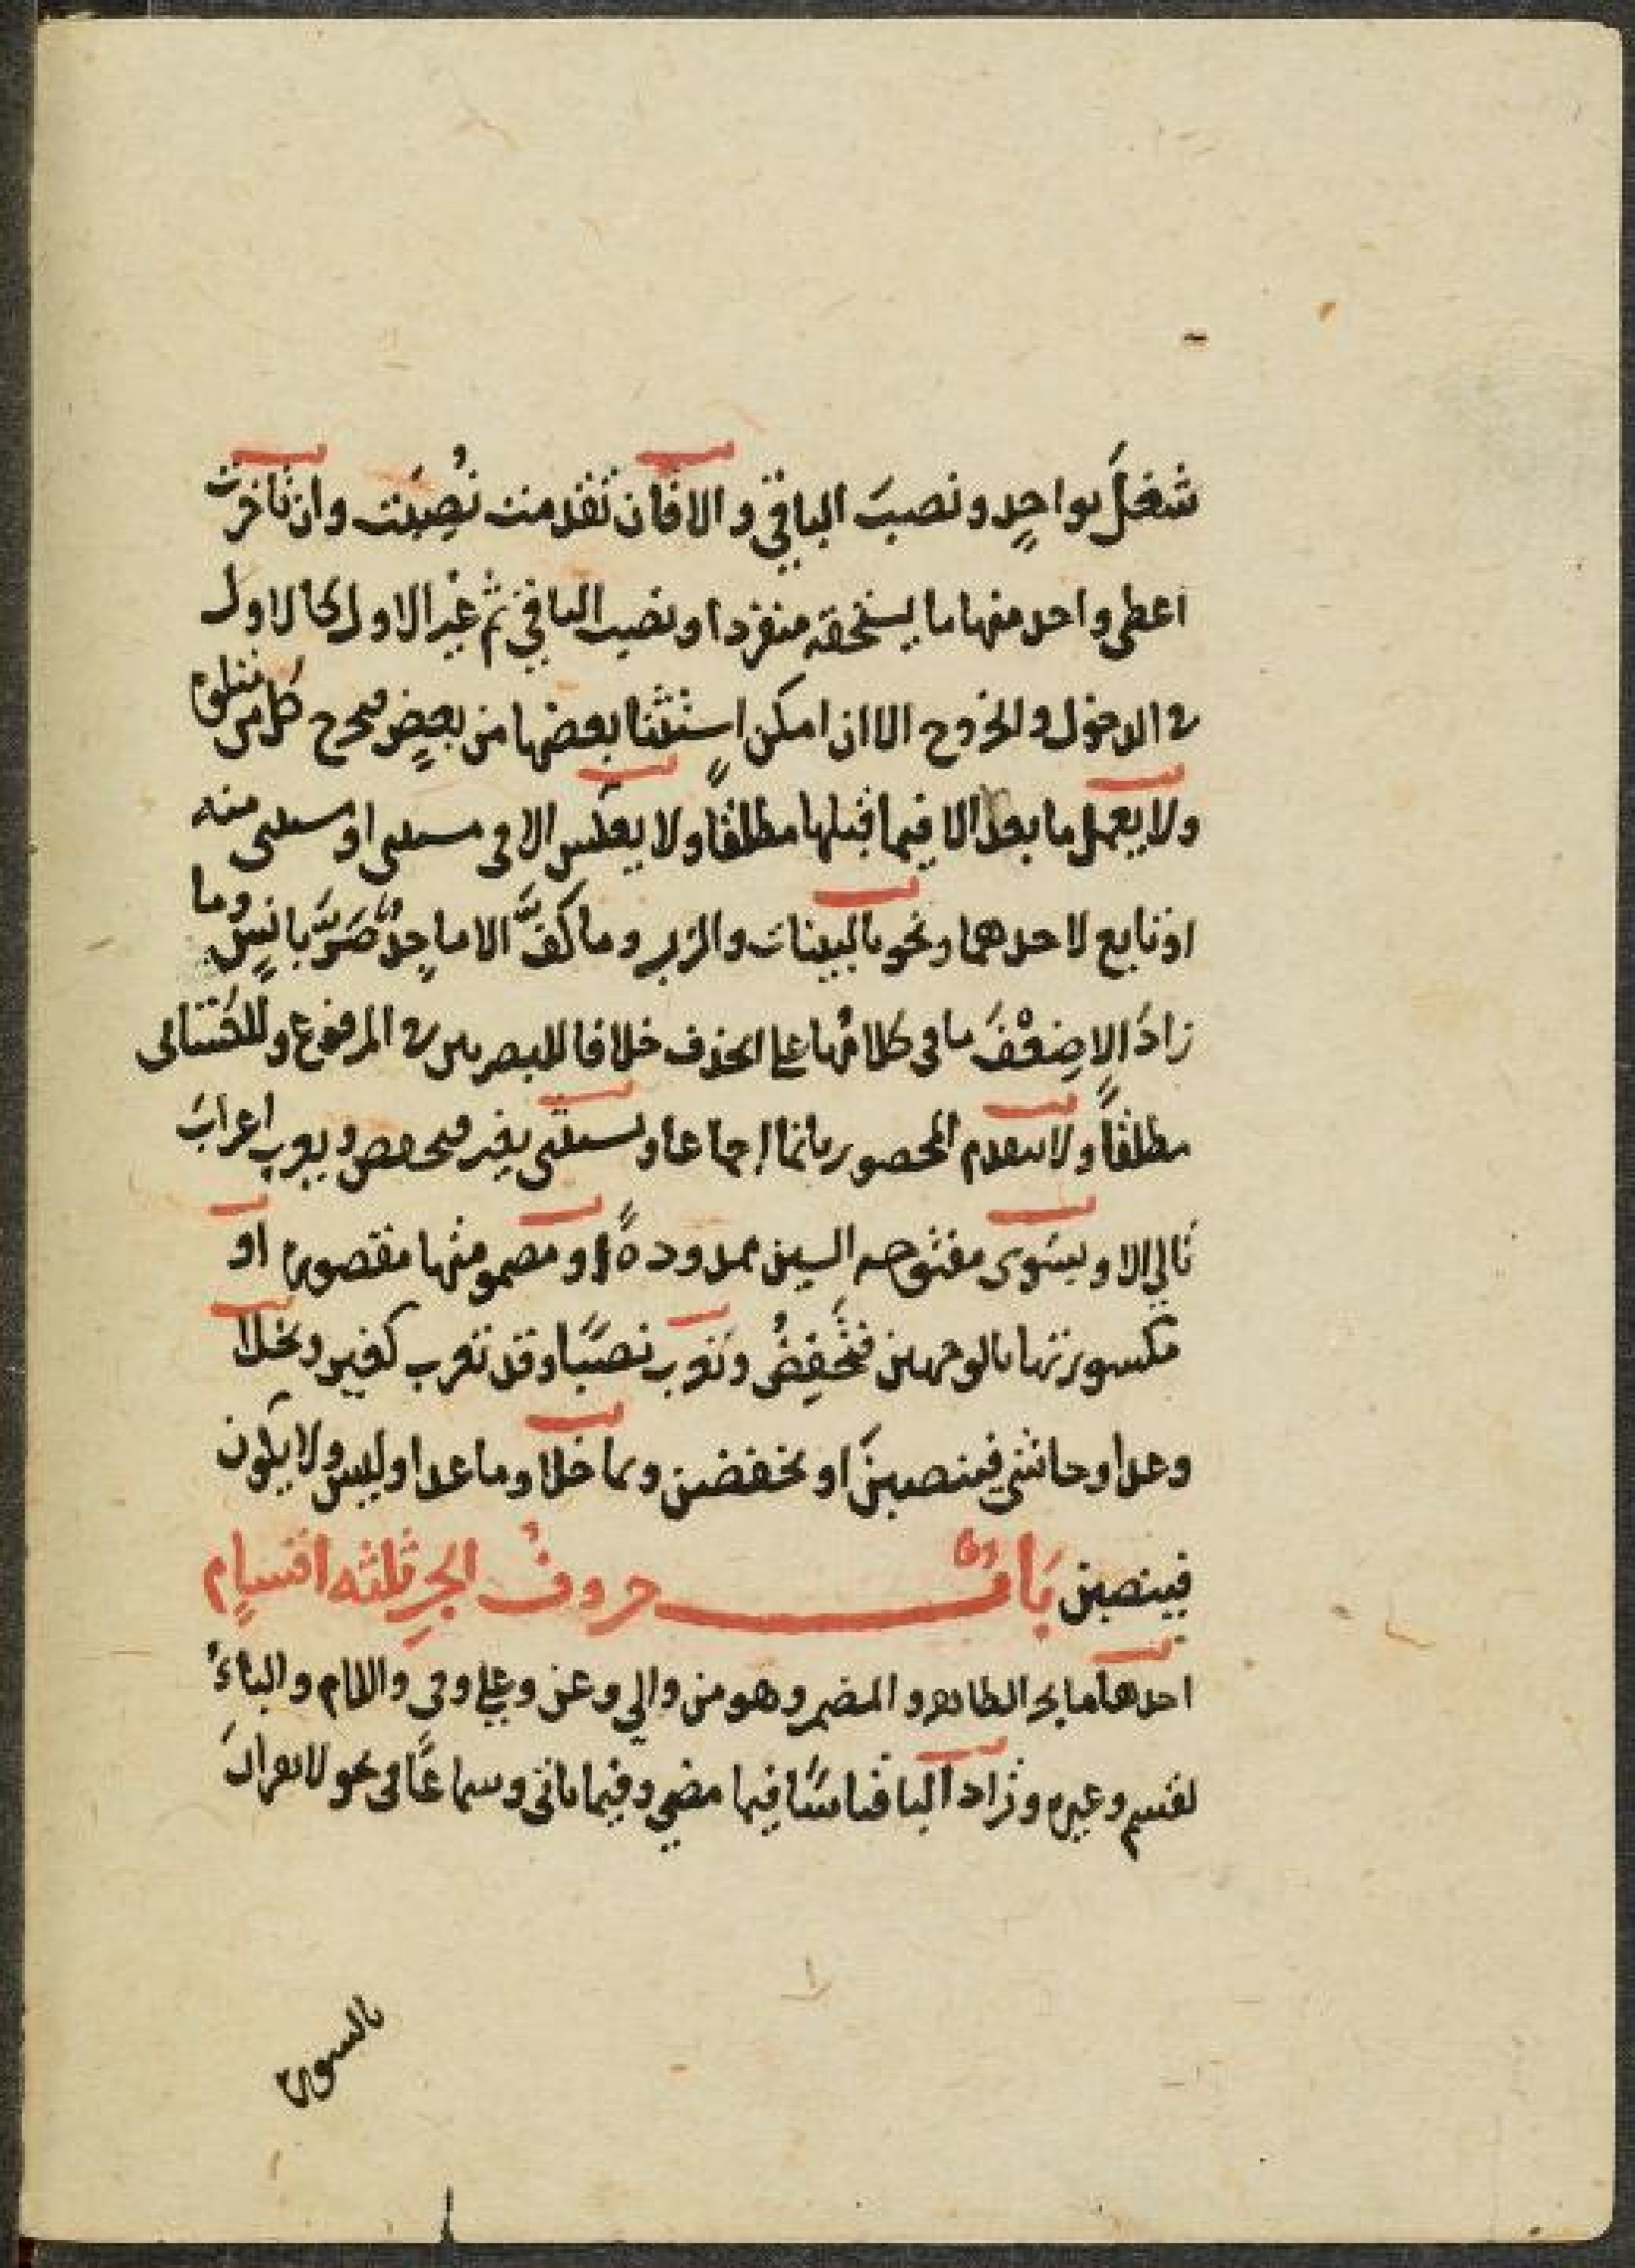 شغل بواحدٍ ونصبَ الباقي والا فان تقدمت نُصِبَت وان تاخرت
اعطى واحد منها ما يستحقه منفردا ونصب الباقي ثم غير الاول كالاول
في الدخول والخروج الا ان امكن استثنا بعضها من بعضٍ فيخرج كل من متلوه
ولا يعمل ما بعد الا فيما قبلها مطلقًا ولا يعكس الا في مستثنى او مستثنى منه
او تابع لاحدهما ونحو بالبينات والزبر وما كفَّ الا ماجدٌ ضرَّ بائسٍ وما
زادَ الا ضِعْفَ ما بي كلامُها على الحذف خلافا للبصريين في المرفوع وللكسائى
مطلقًا ولا يتقدم المحصور بانما اجماعا ويستثنى بغير فيخفض ويعرب اعرابَ
تالي الا وبسوى مفتوحه السين ممدودةً او مضمومتها مقصوره او
مكسورتها بالوجهين فتخفِضُ وتعرب نصبًا وقد تعرب كغير وبخلا
وعدا وحاشى فينصبنَ او يخفضن وبما خلا وما عدا وليس ولا يكون
فينصبن بابٌ حروفُ الجرِ ثلثه اقسامٍ
احدها ما يجر الظاهر والمضمر وهو من والي وعن وعلي وفي واللام والباءُ
لقسم وغيره وتزاد البا قياسًا فيما مضي وفيما ياتى وسماعًا في نحو لا يقرانَ
بالسور